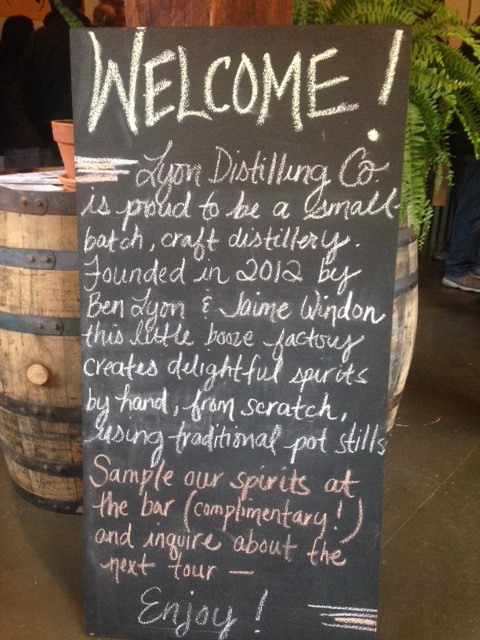 WELCOME!
Lyon Distilling Co
is proud to be a small-
batch, craft distillery.
Founded in 2012 by
Ben Lyon & Jaime Windon
this little booze factory
creates delightful spirits
by hand, from scratch,
using traditional pot stills
Sample our spirits at
the bar (complimentary!)
and inquire about the
next tour —
Enjoy!